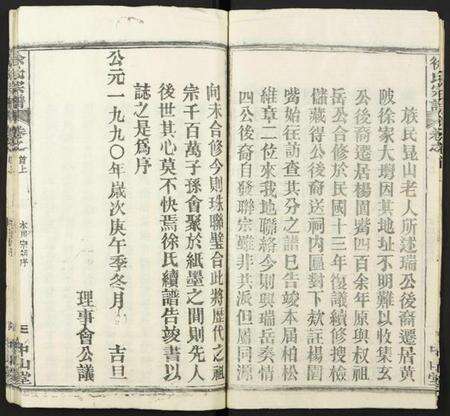 徐氏宗譜
卷之首
族民昆山老人所述瑞公後裔遷居黄
陂徐家大塆因其地址不明難以收集玄
公後裔遷居楊園嘴四百余年原與权祖
岳公合修於民國十三年復議續修搜檢
儲藏得公後裔送祠内匾對下欵註楊園
嘴始往访查其分之譜已告竣本届柏松
維章二位來我地联絡今則與瑞岳奏情
四公後裔自發聯宗雖非其派但属同源
向未合修今则珠聯璧合此將歷代之祖
宗千百萬子孫會聚於紙墨之間則先人
後世其心莫不快焉徐氏續譜告竣書以
誌之是爲序
公元一九九〇年歲次庚午季冬月 吉旦
理事會公議
徐氏宗譜
卷之
首上
三
中山堂